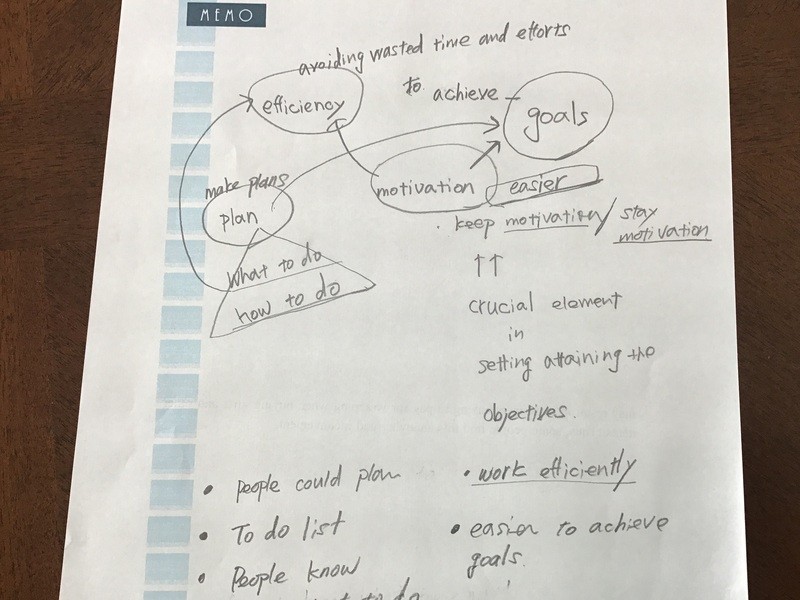 MEMO
avoiding wasted time and efforts
to achieve
efficiency
goals
make plans
motivation
easier
plan
keep motivation / stay
motivation
What to do
how to do
crucial element
in
setting attaining the
objectives.
• people could plan
• work efficiently
• To do list
• easier to achieve
goals.
• People know
to do